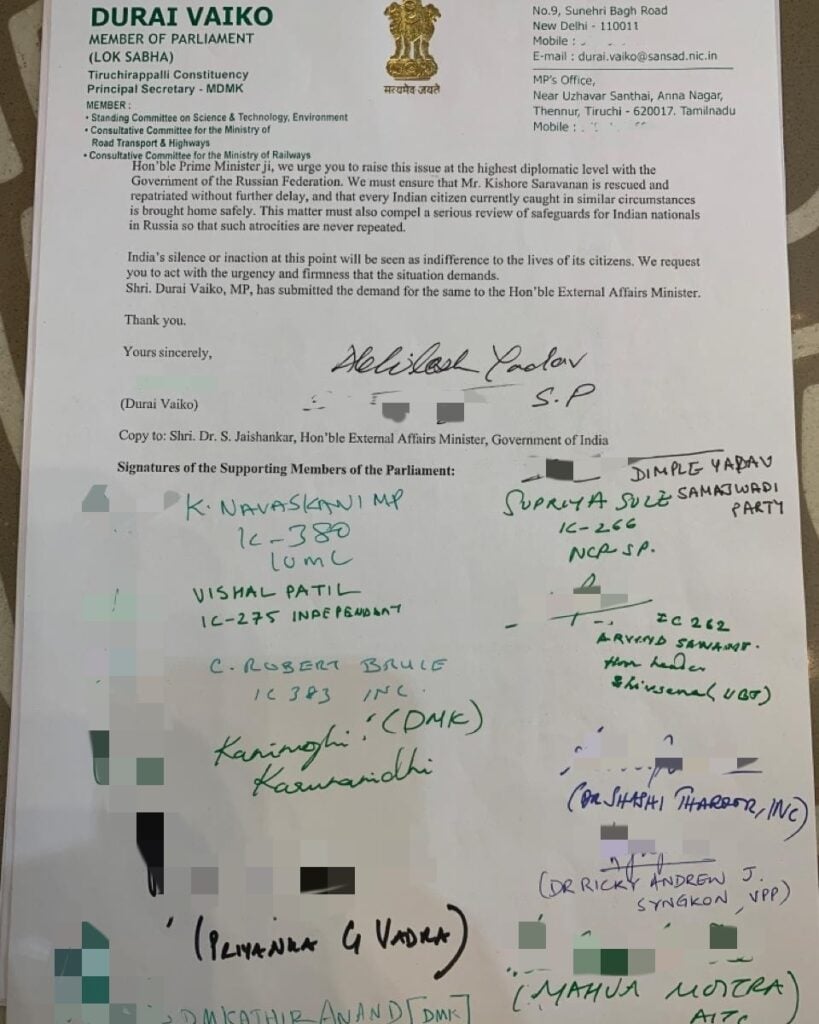 DURAI VAIKO
MEMBER OF PARLIAMENT
(LOK SABHA)
Tiruchirappalli Constituency
Principal Secretary - MDMK
MEMBER :
• Standing Committee on Science & Technology, Environment
• Consultative Committee for the Ministry of
Road Transport & Highways
• Consultative Committee for the Ministry of Railways
सत्यमेव जयते
No.9, Sunehri Bagh Road
New Delhi - 110011
Mobile :
E-mail : durai.vaiko@sansad.nic.in
MP's Office,
Near Uzhavar Santhai, Anna Nagar,
Thennur, Tiruchi - 620017. Tamilnadu
Mobile :
Hon'ble Prime Minister ji, we urge you to raise this issue at the highest diplomatic level with the
Government of the Russian Federation. We must ensure that Mr. Kishore Saravanan is rescued and
repatriated without further delay, and that every Indian citizen currently caught in similar circumstances
is brought home safely. This matter must also compel a serious review of safeguards for Indian nationals
in Russia so that such atrocities are never repeated.
India's silence or inaction at this point will be seen as indifference to the lives of its citizens. We request
you to act with the urgency and firmness that the situation demands.
Shri. Durai Vaiko, MP, has submitted the demand for the same to the Hon'ble External Affairs Minister.
Thank you.
Yours sincerely,
Akhilesh Yadav
S.P
(Durai Vaiko)
Copy to: Shri. Dr. S. Jaishankar, Hon'ble External Affairs Minister, Government of India
Signatures of the Supporting Members of the Parliament:
DIMPLE YADAV
SAMAJWADI
PARTY
K. NAVASKANI MP
IC-380
IUML
SUPRIYA SULE
IC-266
NCP SP.
VISHAL PATIL
IC-275 INDEPENDANT
IC 262
ARVIND SAWANT.
Hon leader
Shivsena (UBT)
C. ROBERT BRUCE
IC 383 INC.
Kanimozhi (DMK)
Karunanidhi
(DR SHASHI THAROOR, INC)
(DR RICKY ANDREW J.
SYNGKON, VPP)
(PRIYANKA G VADRA)
(MAHUA MOITRA)
AITC
DM KATHIR ANAND [DMK]